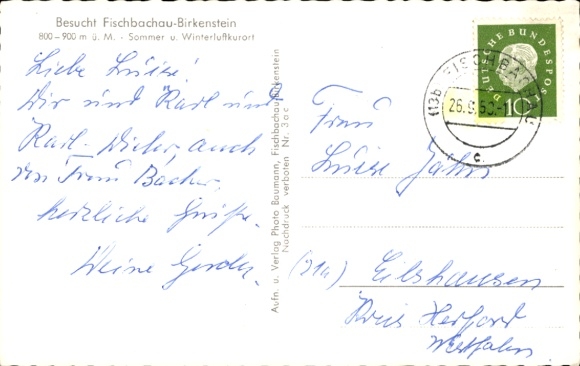 Besucht Fischbachau-Birkenstein
800–900 m ü. M. - Sommer u. Winterluftkurort
Liebe Luise!
Dir und Karl und
Karl-Dieter, auch
von Frau Bacher,
herzliche Grüße.
Deine Gerda.
Aufn. u. Verlag Photo Baumann, Fischbachau-Birkenstein
Nachdruck verboten Nr. 3ac
DEUTSCHE BUNDESPOST
10
(13b FISCHBACHAU
26.9.59.-
c
Frau
Luise Jahn
(21a) Eilshausen
Kreis Herford
Westfalen